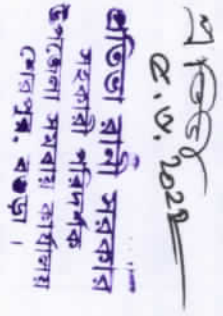 প্রতিভা
প্রতিভা রানী সরকার
সহকারী পরিদর্শক
উপজেলা সমবায় কার্যালয়
শেরপুর, বগুড়া ।